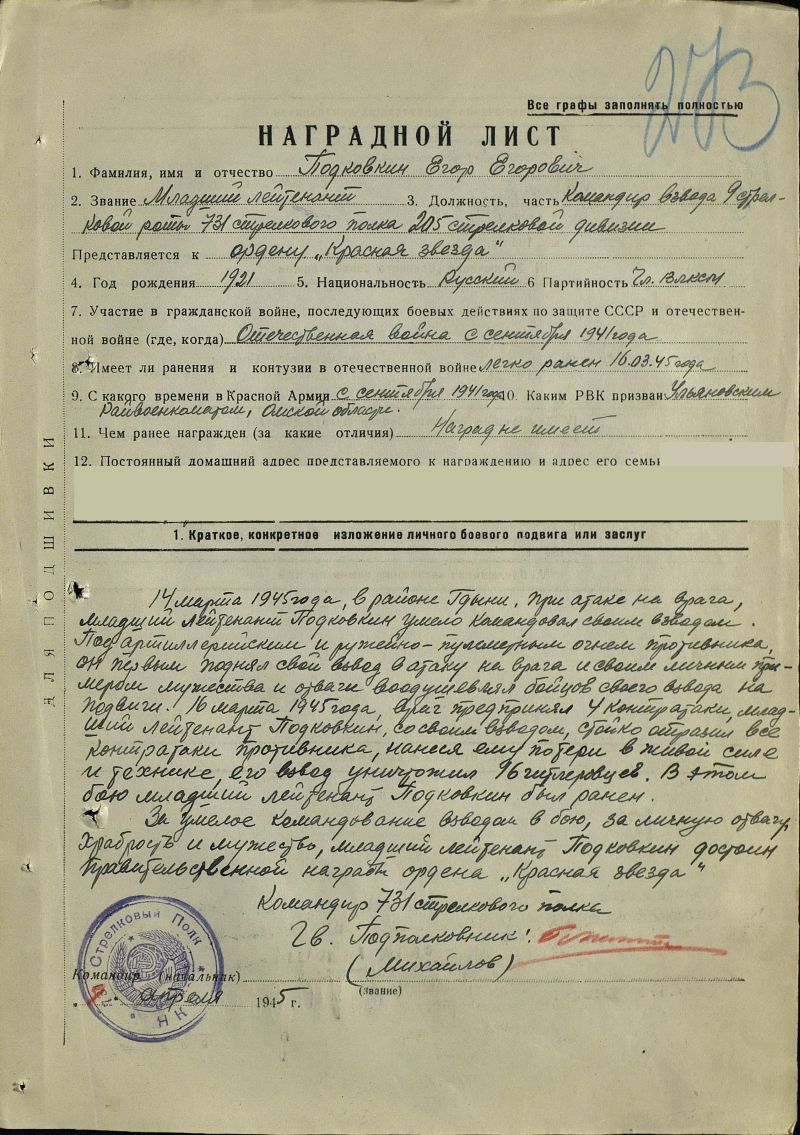 273
Все графы заполнять полностью
НАГРАДНОЙ ЛИСТ
1. Фамилия, имя и отчество Подковкин Егор Егорович
2. Звание Младший лейтенант 3. Должность, часть Командир взвода 9 стрел-
ковой роты 731 стрелкового полка 205 стрелковой дивизии
Представляется к ордену „Красная звезда"
4. Год рождения 1921 5. Национальность Русский 6 Партийность Чл. ВЛКСМ
7. Участие в гражданской войне, последующих боевых действиях по защите СССР и отечествен-
ной войне (где, когда) Отечественная война с сентября 1941 года
8. Имеет ли ранения и контузии в отечественной войне легко ранен 16.03.45 года
9. С какого времени в Красной Армии с сентября 1941 года 10. Каким РВК призван Ульяновским
Райвоенкоматом, Омской области.
11. Чем ранее награжден (за какие отличия) Наград не имеет
12. Постоянный домашний адрес представляемого к награждению и адрес его семьи
ДЛЯ ПОДШИВКИ
1. Краткое, конкретное изложение личного боевого подвига или заслуг
14 марта 1945 года, в районе Гдыни, при атаке на врага,
младший лейтенант Подковкин умело командовал своим взводом.
Под артиллерийским и ружейно-пулеметным огнем противника,
он первым поднял свой взвод в атаку на врага и своим личным при-
мером мужества и отваги воодушевлял бойцов своего взвода на
подвиги. 16 марта 1945 года, враг предпринял 4 контратаки, млад-
ший лейтенант Подковкин, со своим взводом, стойко отразил все
контратаки противника, нанеся ему потери в живой силе
и технике, его взвод уничтожил 96 гитлеровцев. В этом
бою младший лейтенант Подковкин был ранен.
За умелое командование взводом в бою, за личную отвагу
храбрость и мужество, младший лейтенант Подковкин достоин
правительственной награды ордена „Красная звезда"
Командир 731 стрелкового полка
Гв. Подполковник:
(Михайлов)
Командир (начальник)
(звание)
апреля 1945 г.
Стрелковый Полк
731
НКО